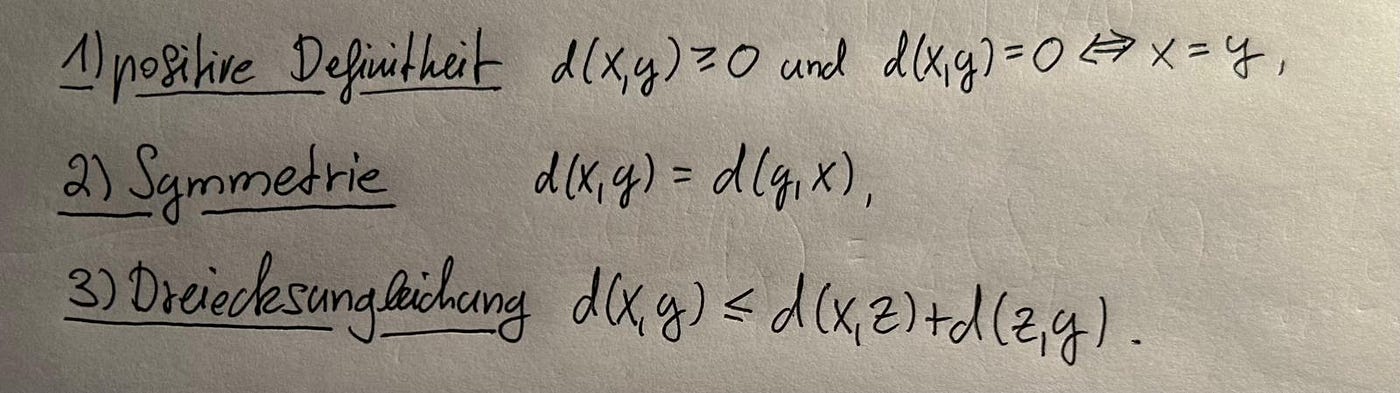 1) positive Definitheit d(x,y) ≥ 0 und d(x,y) = 0 ⇔ x = y,
2) Symmetrie d(x,y) = d(y,x),
3) Dreiecksungleichung d(x,y) ≤ d(x,z) + d(z,y).